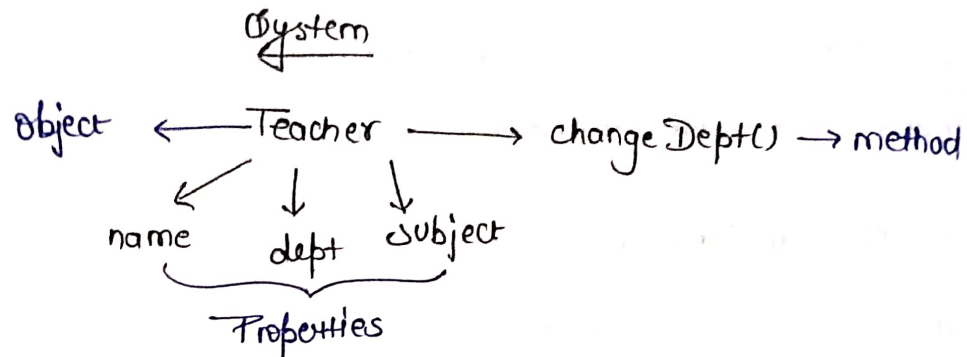 System
Object ← Teacher → changeDept() → method
name dept subject
Properties